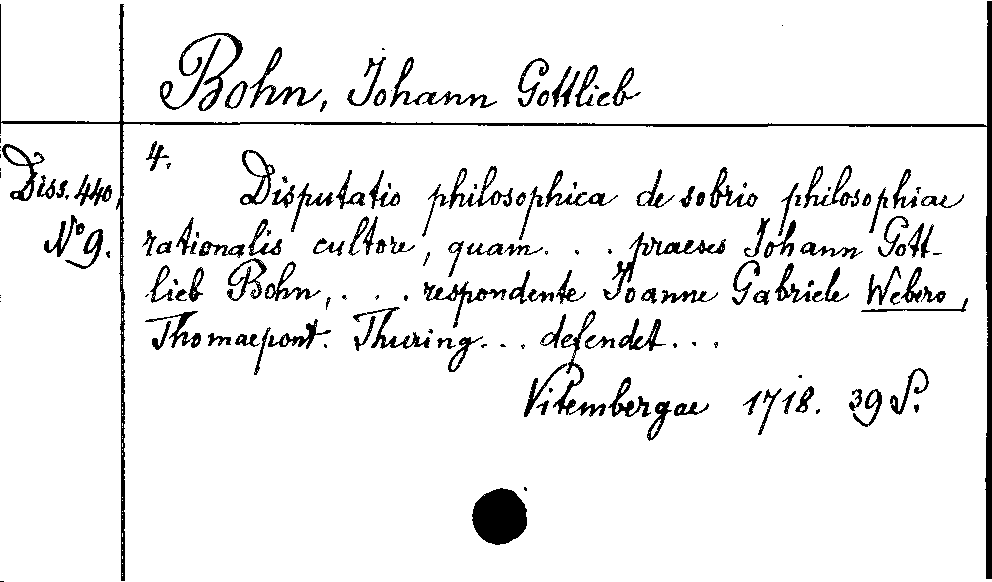 Bohn, Johann Gottlieb
Diss. 440,
No 9.
4.
Disputatio philosophica de sobrio philosophiae
rationalis cultore, quam . . . praeses Johann Gott-
lieb Bohn, . . . respondente Joanne Gabriele Webero,
Thomaepont. Thuring. . . defendet . . .
Vitembergae 1718. 39 S.